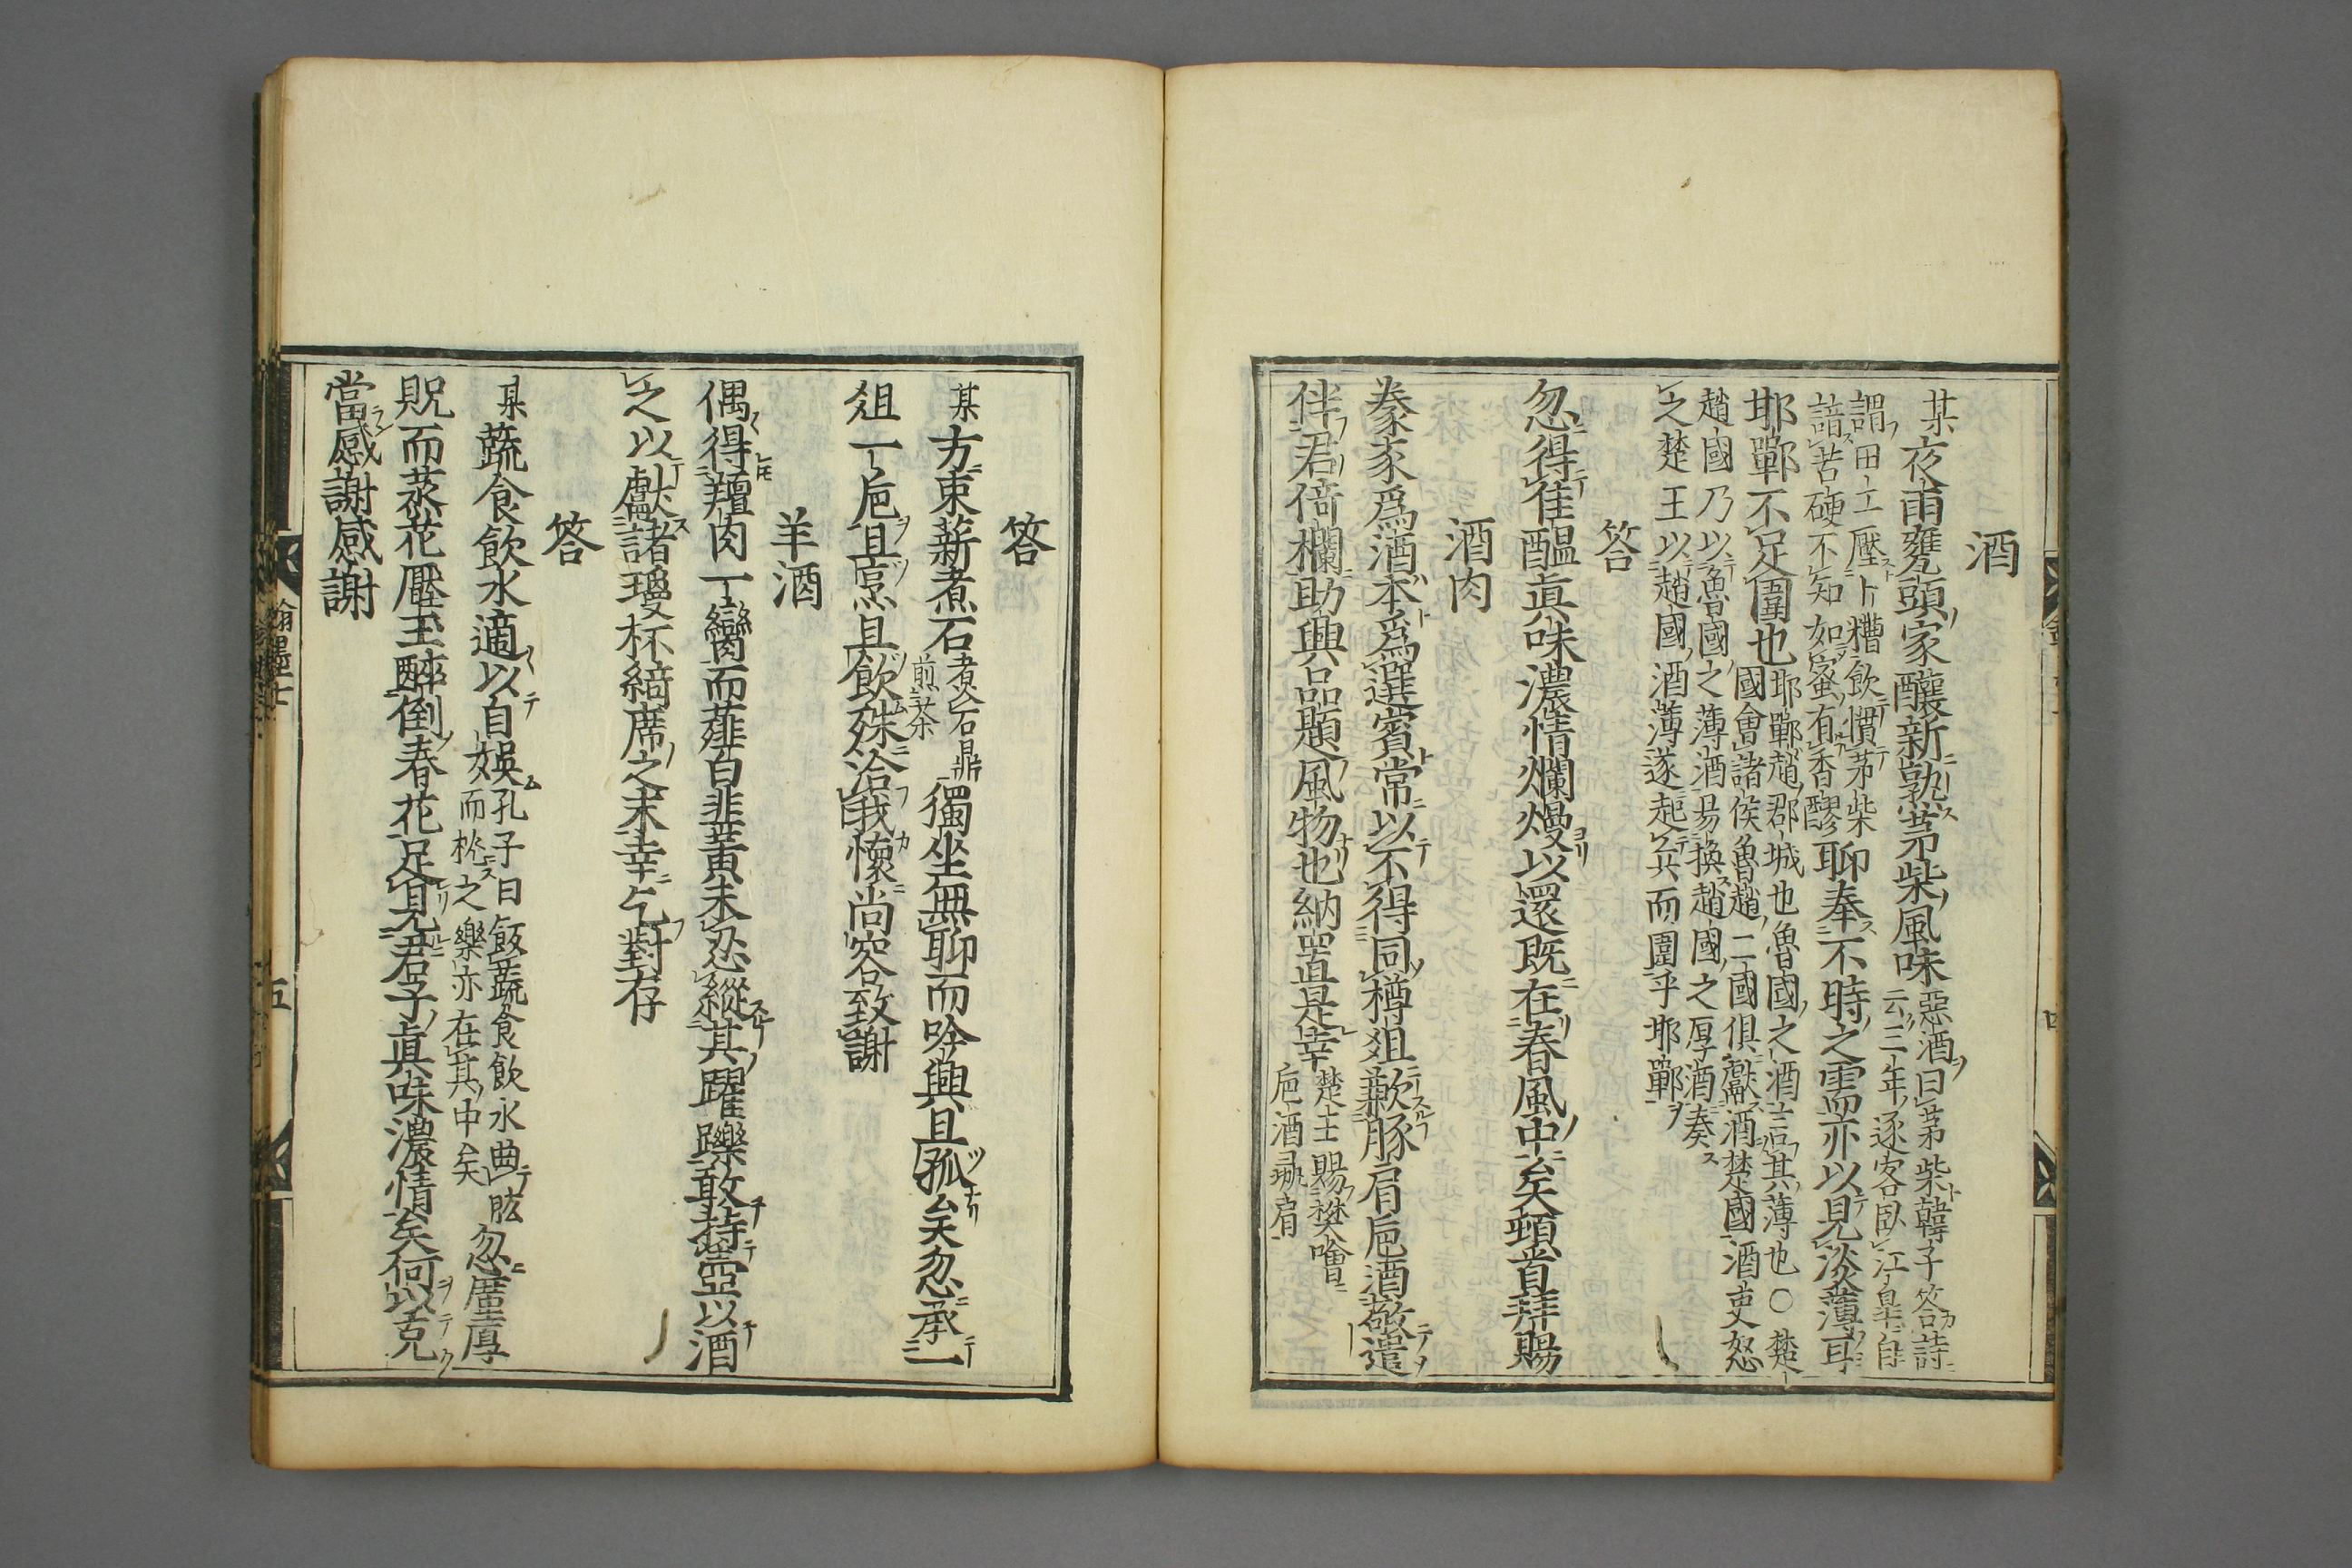 酒
某夜雨甕頭家釀新熟茅柴風味惡酒曰茅柴韓子答詩
云三年逐客臥江皐自
謂田工壓卜糟飲慣茅柴
諳苦硬不知如蜜有香醪聊奉不時之需亦以見淡薄耳
耶鄲不足圍也耶鄲趙郡城也魯國之酒言其薄也〇楚
國會諸侯魯趙二國俱獻酒楚國酒吏怒
趙國乃以魯國之薄酒易換趙國之厚酒奏
之楚王以趙國酒薄遂起兵而圍乎耶鄲
答
忽得佳醞眞味濃情爛熳以還既在春風中矣頓首拜賜
酒肉
豢豕爲酒本爲選賓常以不得同樽俎歉豚肩巵酒敬遣
伴君倚欄助興品題風物也納置是幸楚士賜樊噲
巵酒彘肩
答
某方束薪煮石煮石鼎
煎茶獨坐無聊而吟興且孤矣忽承一
俎一巵且烹且飲殊洽我懷尚容致謝
羊酒
偶得羶肉一臠而薤白韭黃未忍縱其躍躒敢持壺以酒
之以獻諸瓊杯綺席之末幸乞對存
答
某蔬食飲水適以自娛孔子曰飯蔬食飲水曲肱
而枕之樂亦在其中矣忽厪厚
貺而蒸花壓玉醉倒春花足見君子眞味濃情矣何以克
當感謝感謝
五